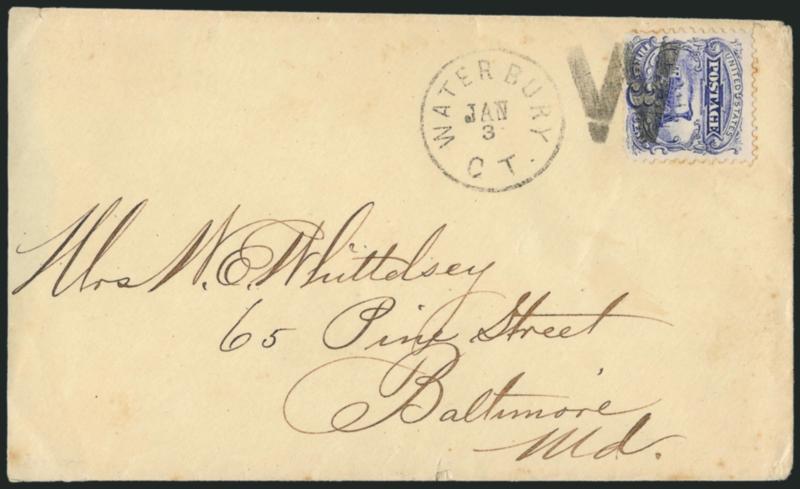 WATERBURY
JAN
3
CT.
W
UNITED STATES
POSTAGE
Mrs W. E. Whittelsey
65 Pine Street
Baltimore
Md.